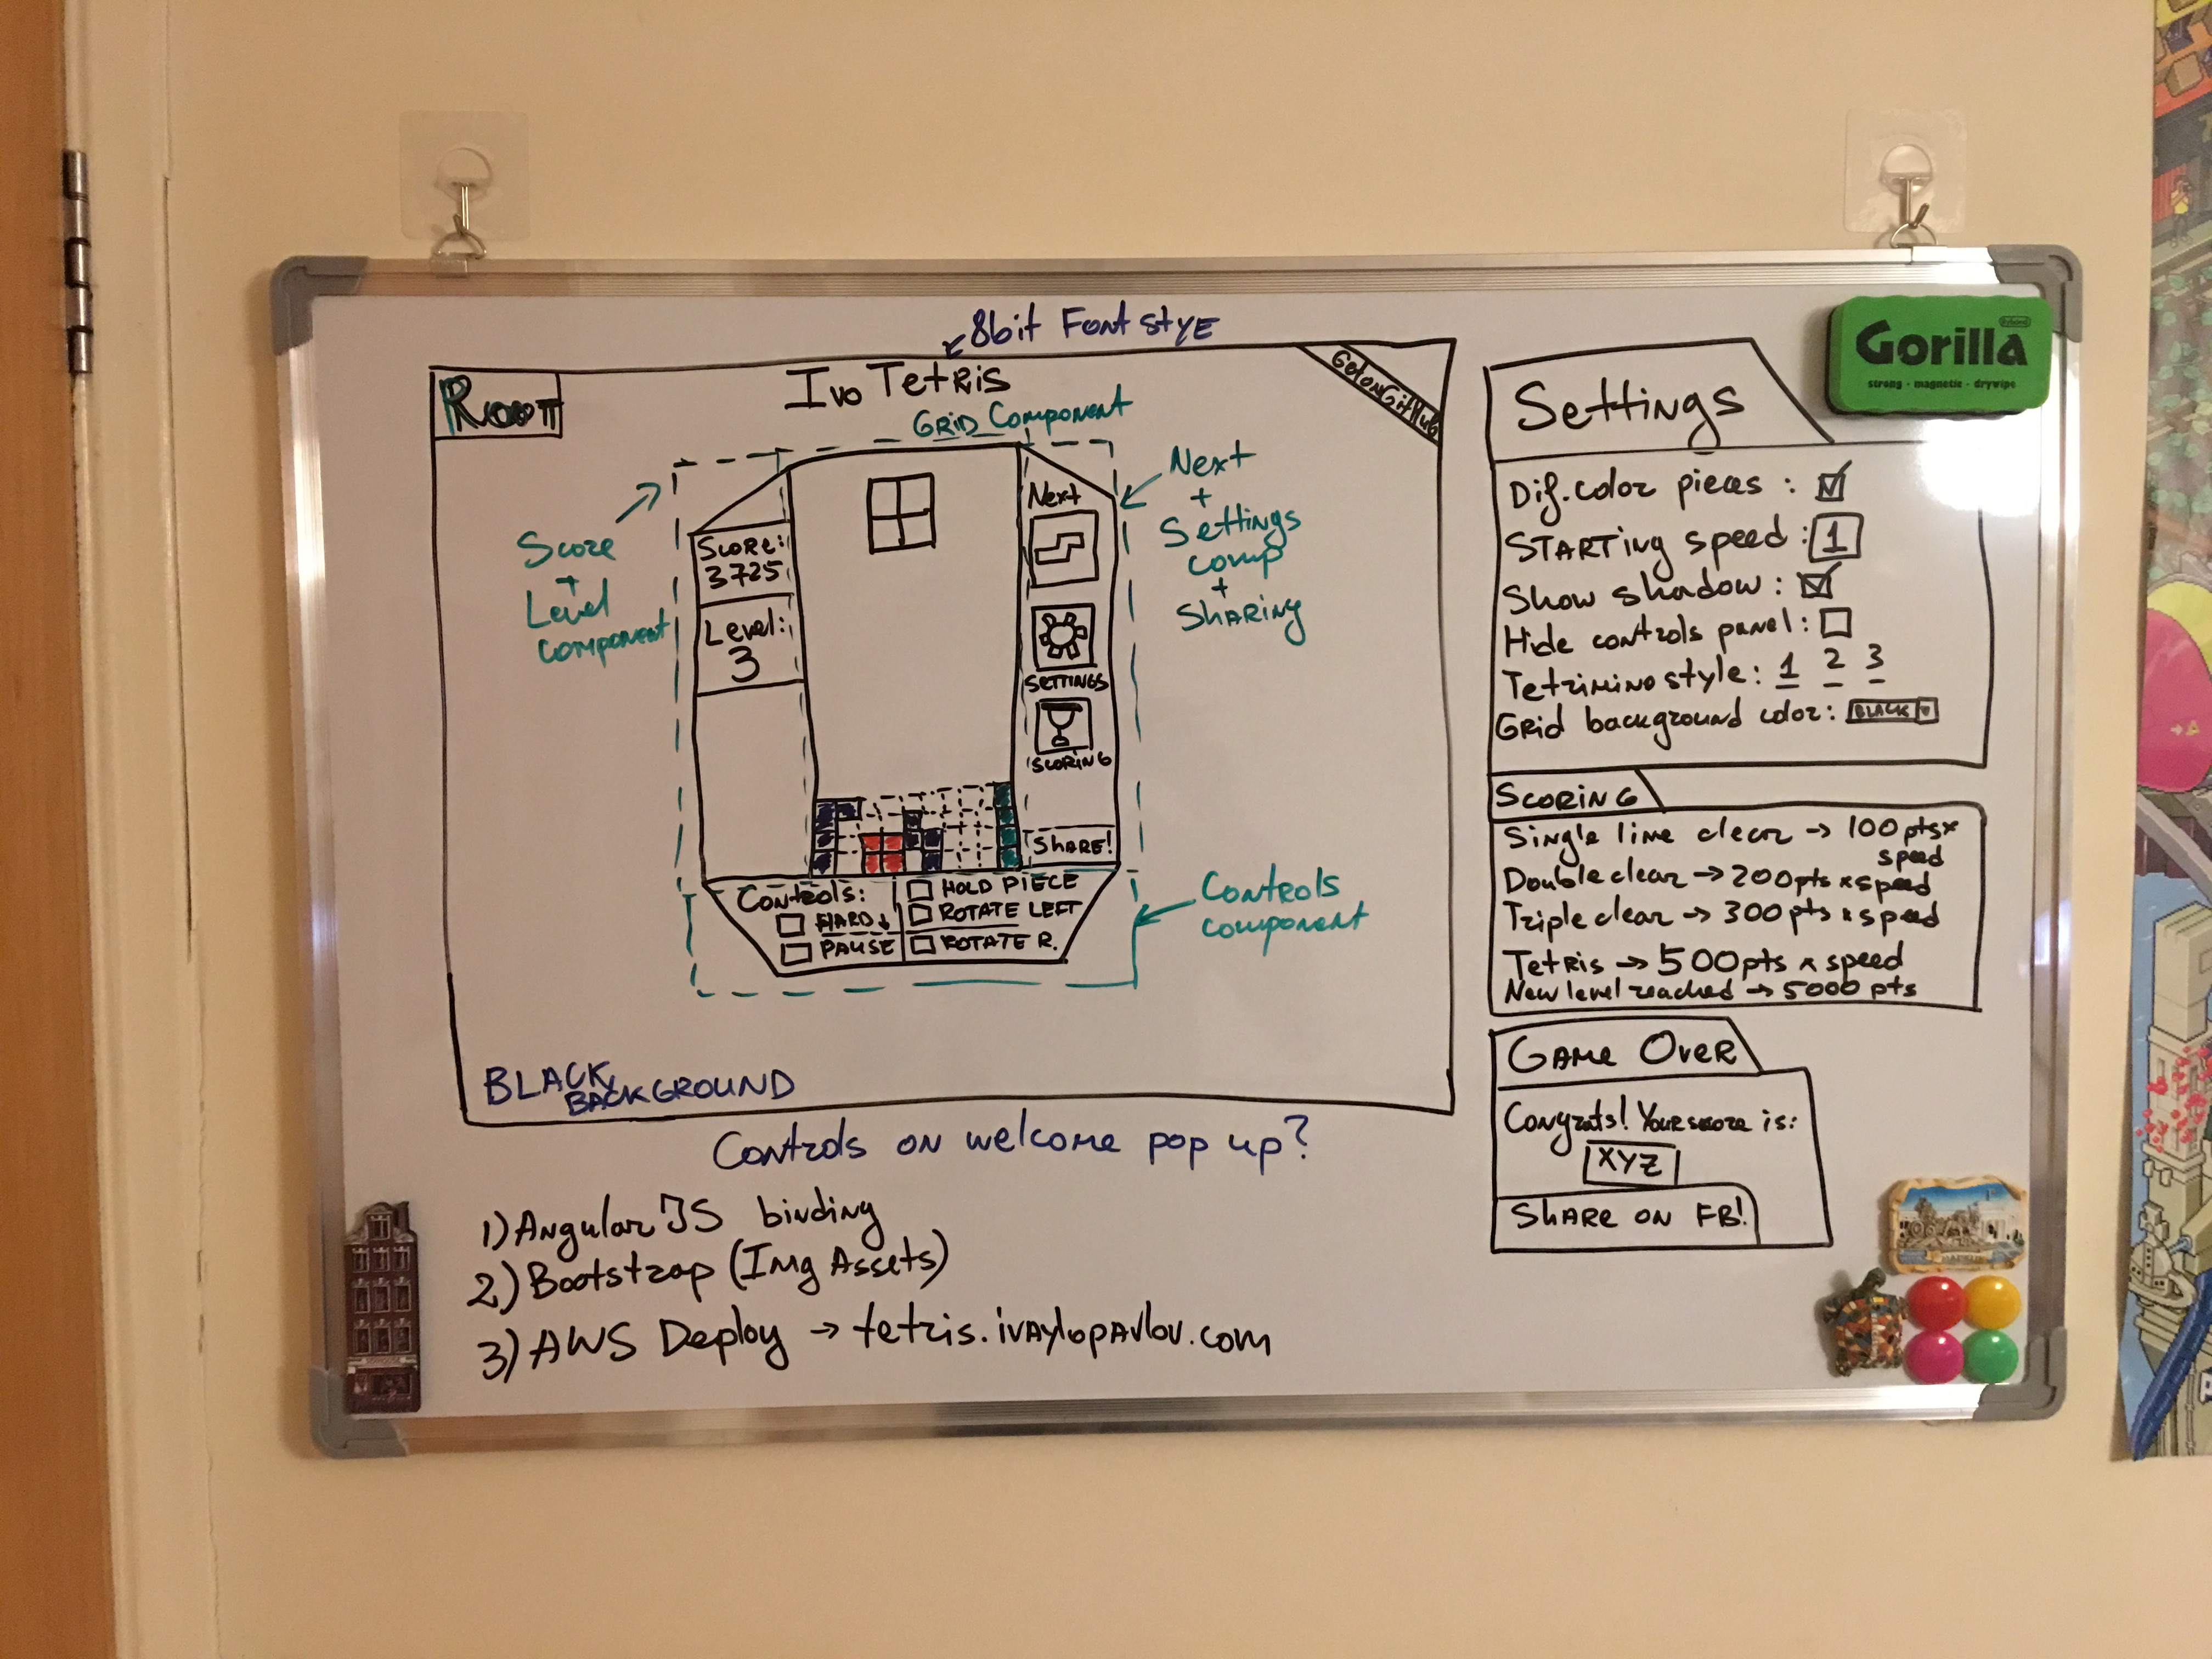 8bit Font stye
Root
Ivo Tetris
GetonGitHub
Grid Component
Score
+
Level
component
Score:
3725
Level:
3
Next
SETTINGS
SCORING
SHARE!
Next
+
Settings
comp
+
Sharing
Controls:
HARD↓
PAUSE
HOLD PIECE
ROTATE LEFT
ROTATE R.
Controls
component
BLACK
BACKGROUND
Controls on welcome pop up?
1) Angular JS binding
2) Bootstrap (Img Assets)
3) AWS Deploy → tetris.ivaylopavlov.com
Gorilla
strong - magnetic - drywipe
Settings
Dif. color pieces :
STARTing speed : 1
Show shadow :
Hide controls panel :
Tetrimino style : 1 2 3
Grid background color : BLACK
SCORING
Single line clear → 100 pts x
speed
Double clear → 200 pts x speed
Triple clear → 300 pts x speed
Tetris → 500 pts x speed
New level reached → 5000 pts
Game Over
Congrats! Your score is:
XYZ
Share on FB!